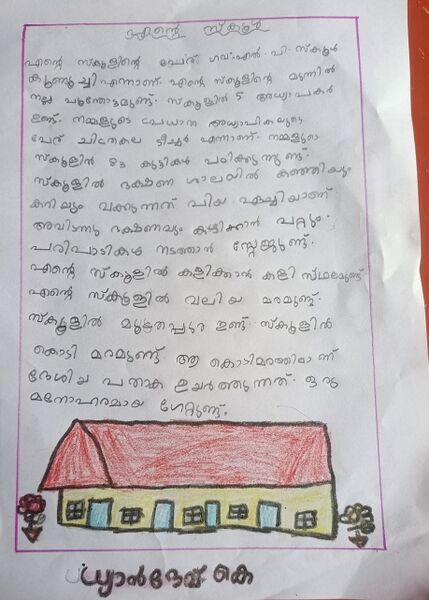 എന്റെ സ്കൂൾ
എന്റെ സ്കൂളിന്റെ പേര് ഗവ: എൽ. പി. സ്കൂൾ
എന്നാണ്. എന്റെ സ്കൂളിന്റെ മുന്നിൽ
നല്ല പൂന്തോട്ടമുണ്ട്. സ്കൂളിൽ 5 അധ്യാപകർ
ഉണ്ട്. നമ്മളുടെ പ്രധാന അധ്യാപികയുടെ
പേര് ടീച്ചർ എന്നാണ്. നമ്മളുടെ
സ്കൂളിൽ കുട്ടികൾ പഠിക്കുന്നുണ്ട്.
സ്കൂളിൽ ഭക്ഷണ ശാലയിൽ കഞ്ഞിയും
കറിയും വക്കുന്നത്
അവിടന്നു ഭക്ഷണവും കഴിക്കാൻ പറ്റും.
പരിപാടികൾ നടത്താൻ സ്റ്റേജുമുണ്ട്.
എന്റെ സ്കൂളിൽ കളിക്കാൻ കളി സ്ഥലമുണ്ട്
എന്റെ സ്കൂളിൽ വലിയ മരമുണ്ട്.
സ്കൂളിൽ ഉണ്ട്. സ്കൂളിൽ
കൊടി മരമുണ്ട് ആ കൊടിമരത്തിലാണ്
ദേശിയ പതാക ഉയർത്തുന്നത്. ഒരു
മനോഹരമായ ഗേറ്റുണ്ട്.
ധ്യാൻദേവ്. കെ